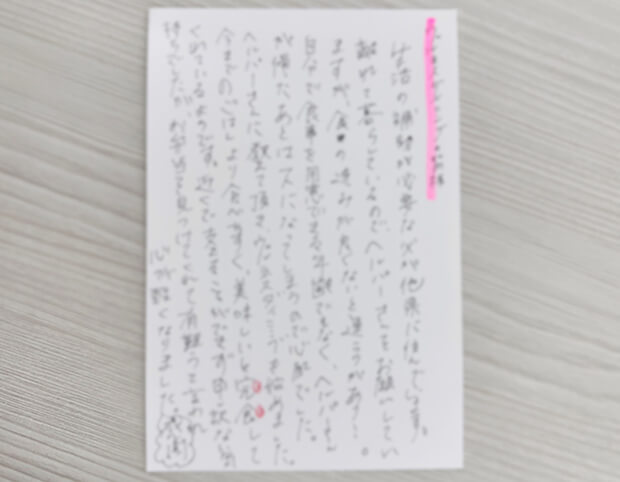 生活の補助が必要な父が他県に住んでいます。
離れて暮らしているのでヘルパーさんをお願いしてい
ますが、食の進みが良くないと連絡があり…。
自分で食事を用意できる年齢でもなく、ヘルパーさん
が帰たあとは一人になってしまうので心配でした。
ヘルパーさんに教えて頂き
今までのごはんより食べやすく、美味しいと完食して
くれているようです。近くで支えることができず申し訳ない気
持ちでしたが、お弁当を見つけてくれて有難うと言われ
心が軽くなりました。感謝